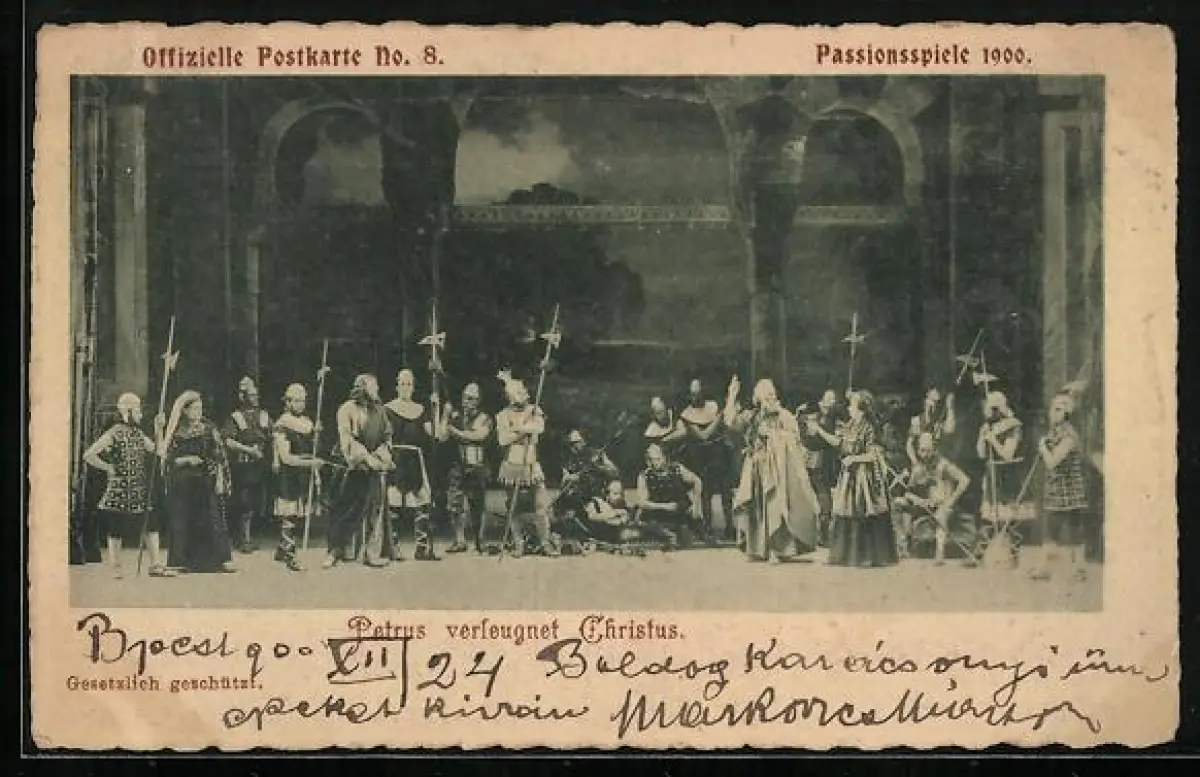 Offizielle Postkarte No. 8.
Passionsspiele 1900.
Petrus verleugnet Christus.
Gesetzlich geschützt.
Bpest 900 XII/24 Boldog Karácsonyi ün
epeket kiván